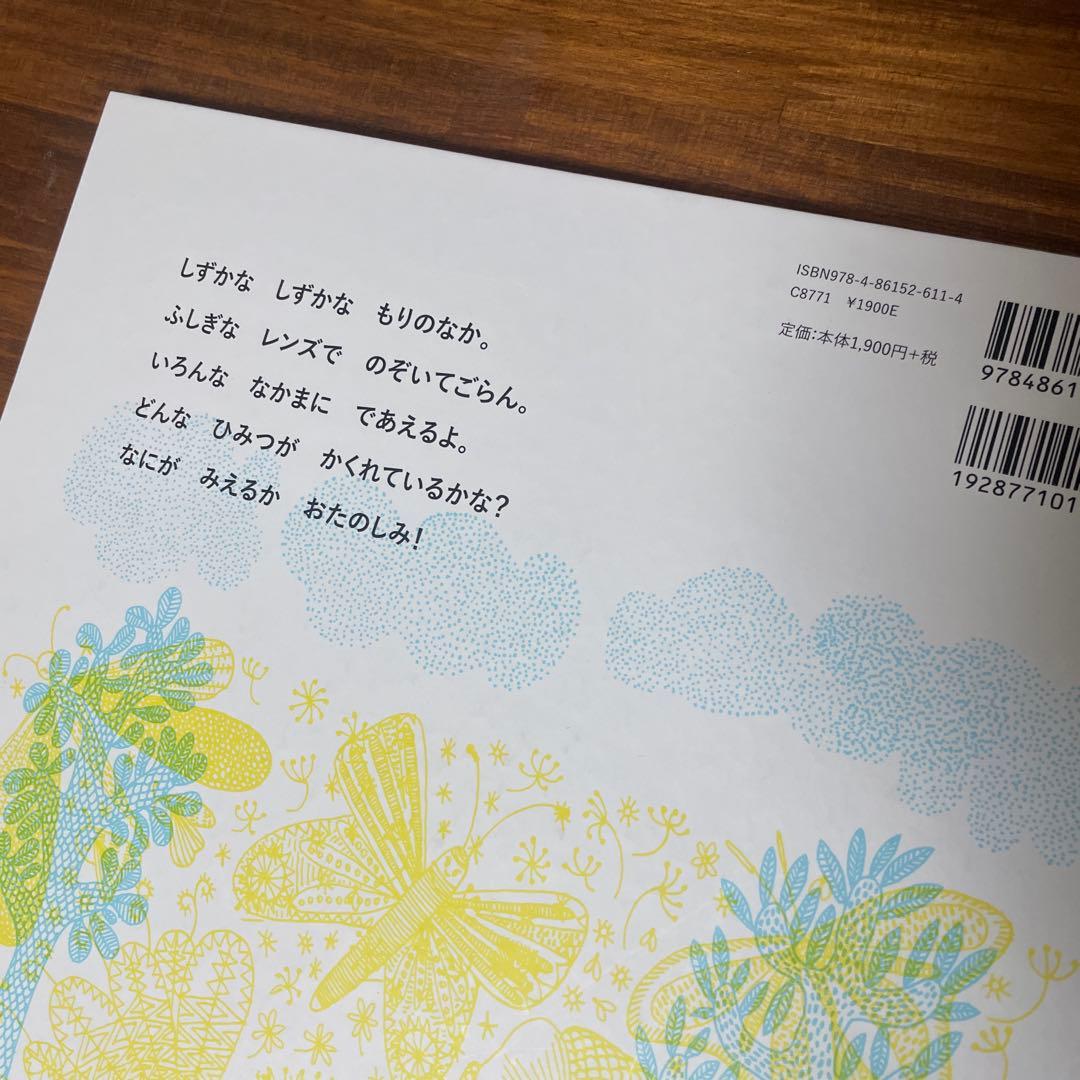 しずかな　しずかな　もりのなか。
ふしぎな　レンズで　のぞいてごらん。
いろんな　なかまに　であえるよ。
どんな　ひみつが　かくれているかな？
なにが　みえるか　おたのしみ！
ISBN978-4-86152-611-4
C8771 ¥1900E
定価：本体1,900円＋税
9784861
192877101